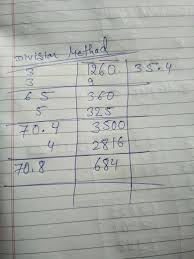 Division Method
3 1260 35.4
3 9
65 360
5 325
70.4 3500
4 2816
70.8 684